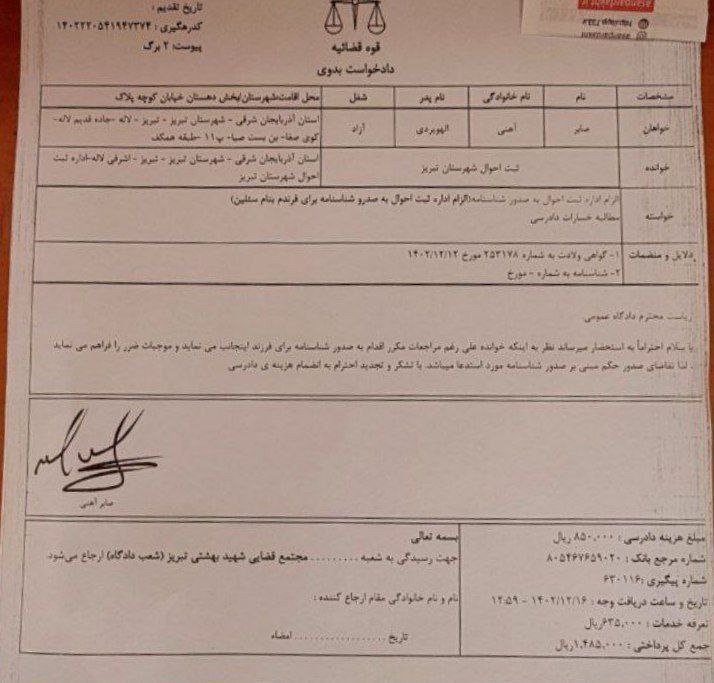 تاریخ تقدیم :
کدرهگیری : ۱۴۰۲۲۲۰۵۴۱۹۴۷۳۷۴
پیوست: ۲ برگ
قوه قضائیه
دادخواست بدوی
مشخصات نام نام خانوادگی نام پدر شغل محل اقامت:شهرستان/بخش دهستان خیابان کوچه پلاک
خواهان صابر آهنی الهویردی آزاد استان آذربایجان شرقی - شهرستان تبریز - تبریز - لاله -جاده قدیم لاله-
کوی صفا- بن بست صبا- پ۱۱ -طبقه همکف
خوانده ثبت احوال شهرستان تبریز استان آذربایجان شرقی - شهرستان تبریز - تبریز - اشرفی لاله-اداره ثبت
احوال شهرستان تبریز
خواسته الزام اداره ثبت احوال به صدور شناسنامه(الزام اداره ثبت احوال به صدرو شناسنامه برای فرندم بنام سئلین)
مطالبه خسارات دادرسی
دلایل و منضمات ۱- گواهی ولادت به شماره ۲۵۳۱۷۸ مورخ ۱۴۰۲/۱۲/۱۲
۲- شناسنامه به شماره - مورخ
ریاست محترم دادگاه عمومی
با سلام احتراماً به استحضار میرساند نظر به اینکه خوانده علی رغم مراجعات مکرر اقدام به صدور شناسنامه برای فرزند اینجانب می نماید و موجبات ضرر را فراهم می نماید
. لذا تقاضای صدور حکم مبنی بر صدور شناسنامه مورد استدعا میباشد. با تشکر و تجدید احترام به انضمام هزینه ی دادرسی
صابر آهنی
مبلغ هزینه دادرسی : ۸۵۰,۰۰۰ ریال
شماره مرجع بانک : ۸۰۵۴۶۷۶۵۹۰۲۰
شماره پیگیری :۶۳۰۱۱۶
تاریخ و ساعت دریافت وجه : ۱۴۰۲/۱۲/۱۶ - ۱۲:۵۹
تعرفه خدمات : ۶۳۵,۰۰۰ریال
جمع کل پرداختی : ۱,۴۸۵,۰۰۰ریال
بسمه تعالی
جهت رسیدگی به شعبه ......... مجتمع قضایی شهید بهشتی تبریز (شعب دادگاه) ارجاع می‌شود.
نام و نام خانوادگی مقام ارجاع کننده :
تاریخ .................... امضاء